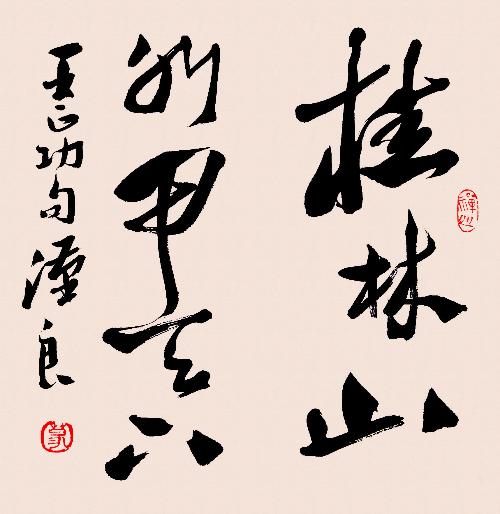 桂林山
水甲天下
王正功句良